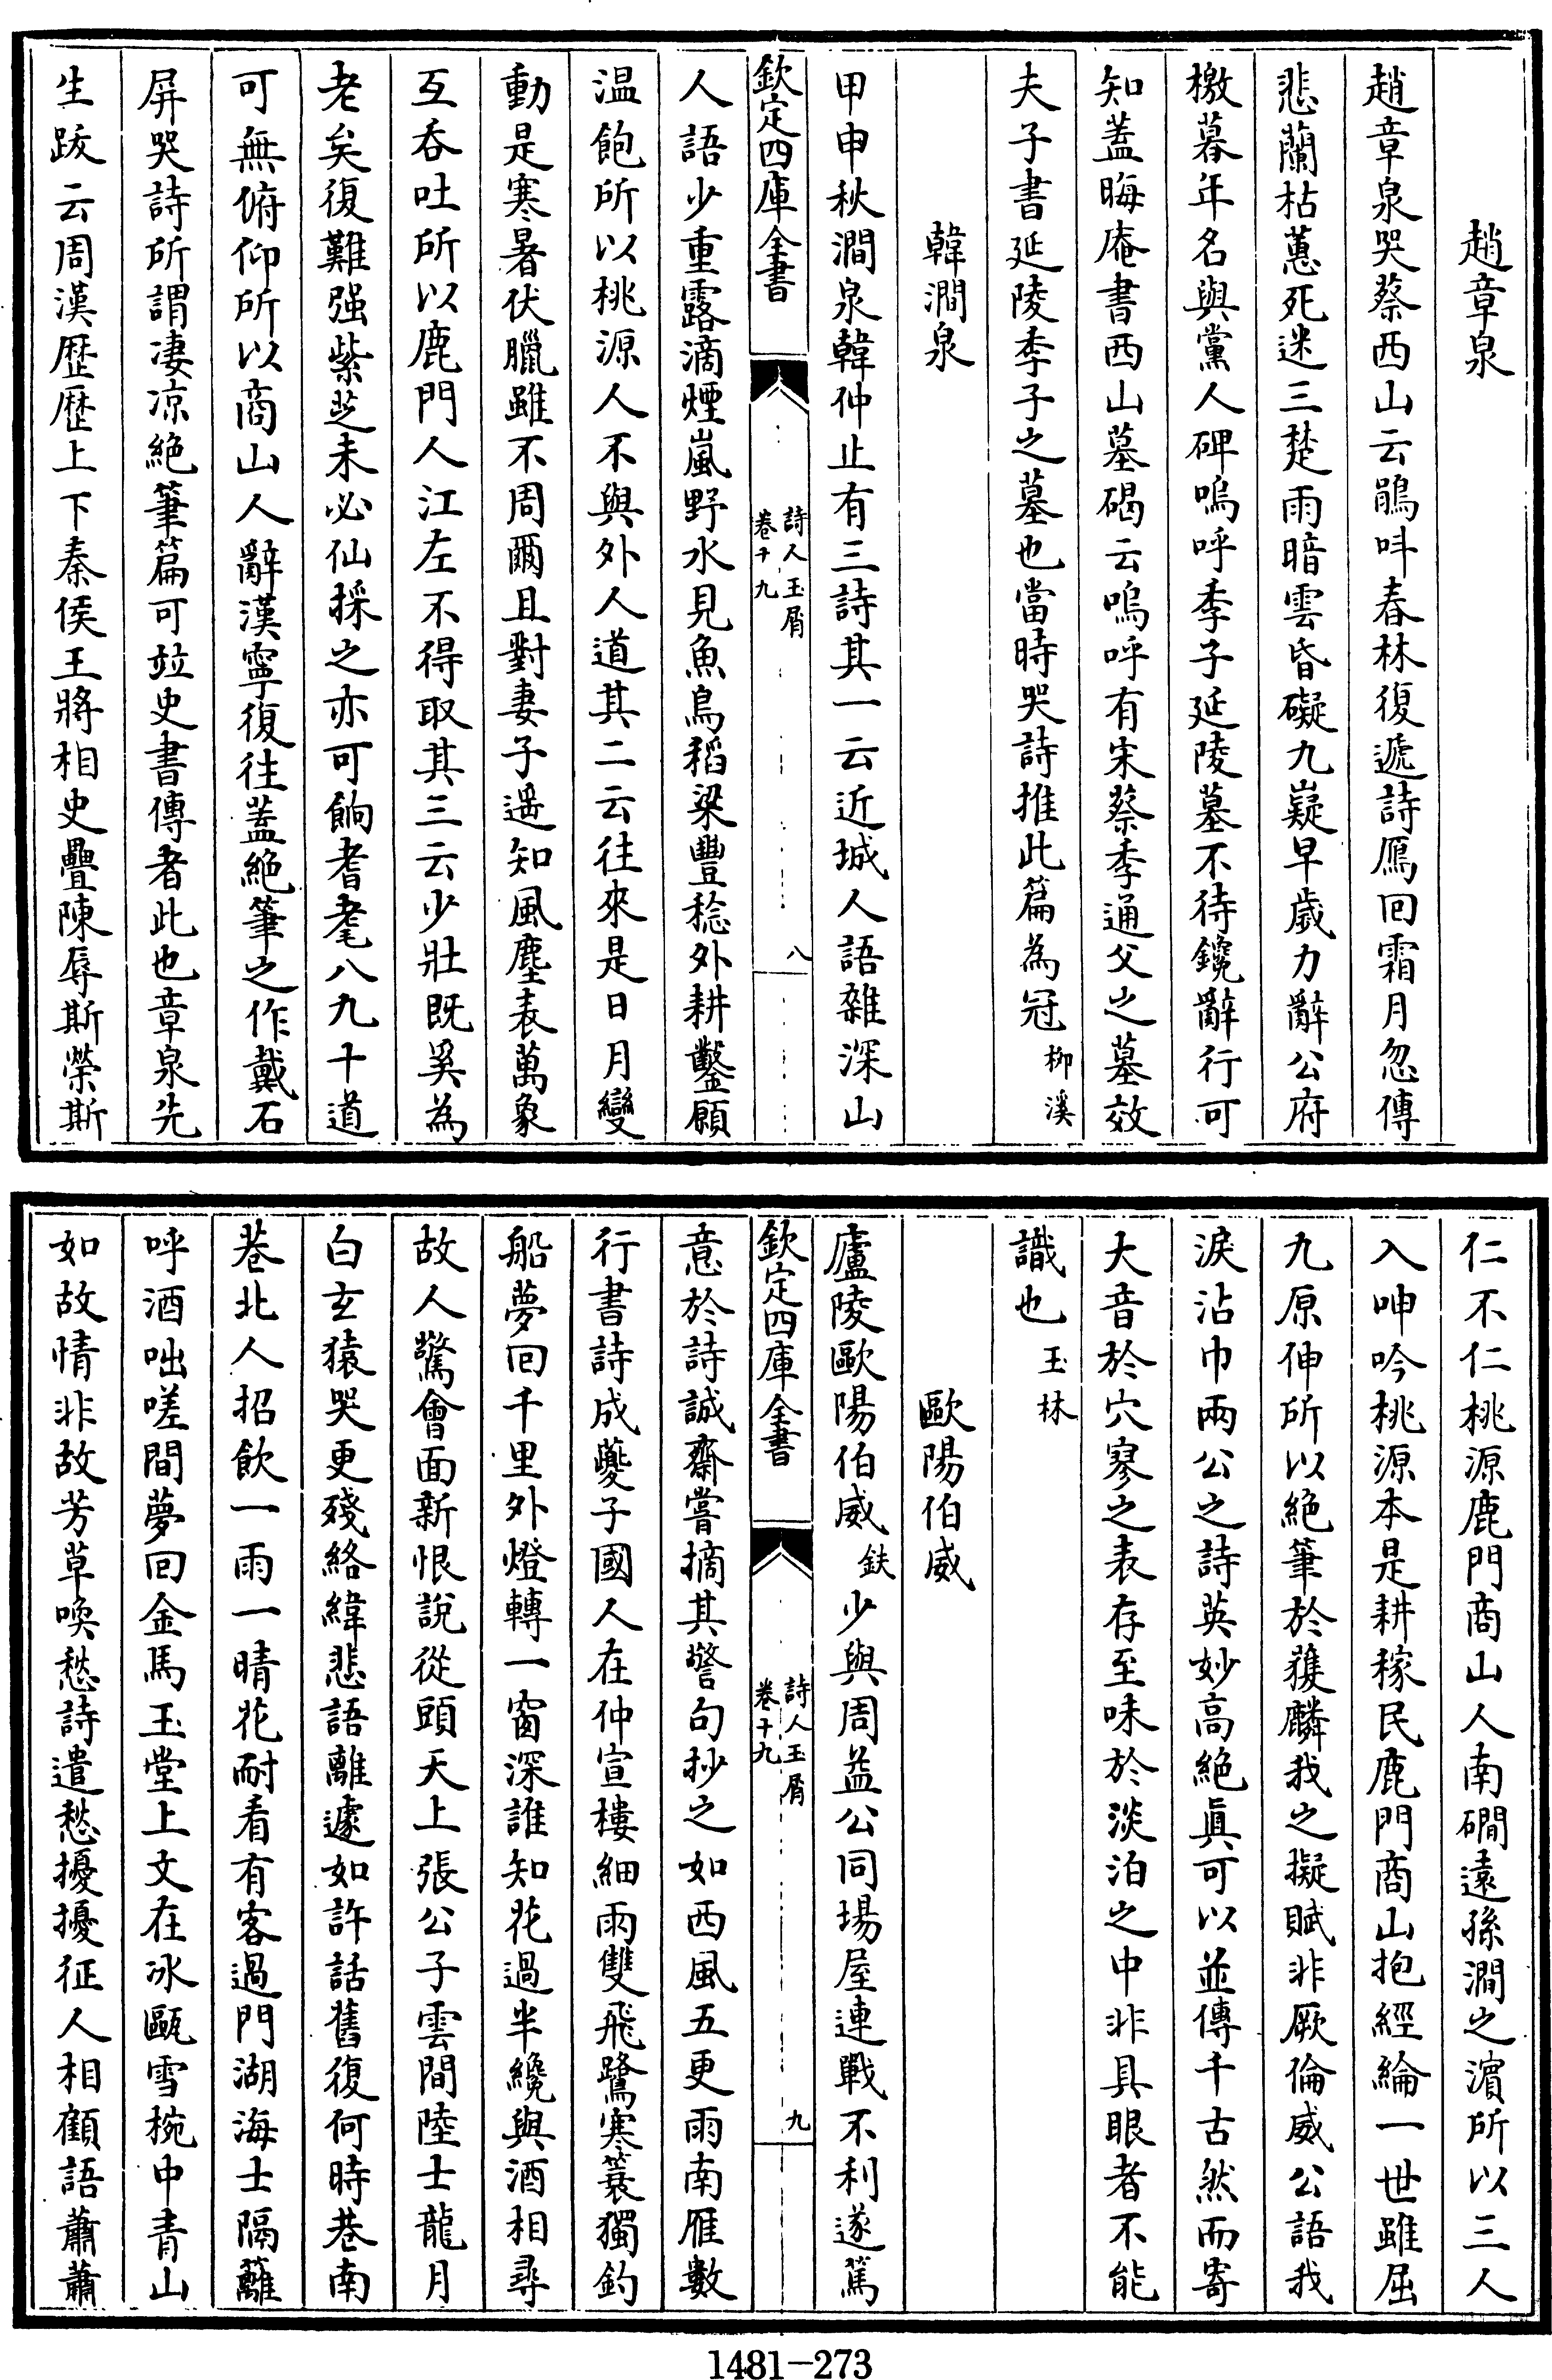 趙章泉
趙章泉哭蔡西山云鵑呌春林復遞詩鴈回霜月忽傳
悲蘭枯蕙死迷三楚雨暗雲昏礙九嶷早歲力辭公府
檄暮年名與黨人碑嗚呼季子延陵墓不待鑱辭行可
知蓋晦庵書西山墓碣云嗚呼有宋蔡季通父之墓效
夫子書延陵季子之墓也當時哭詩推此篇為冠柳溪
韓澗泉
甲申秋澗泉韓仲止有三詩其一云近城人語雜深山
欽定四庫全書
詩人玉屑
卷十九
八
人語少重露滴煙嵐野水見魚鳥稻粱豐稔外耕鑿願
温飽所以桃源人不與外人道其二云往來是日月變
動是寒暑伏臘雖不周爾且對妻子遥知風塵表萬象
互吞吐所以鹿門人江左不得取其三云少壯既奚為
老矣復難强紫芝未必仙採之亦可餉耆耄八九十道
可無俯仰所以商山人辭漢寧復往蓋絶筆之作戴石
屏哭詩所謂凄凉絶筆篇可竝史書傳者此也章泉先
生跋云周漢歴歴上下秦侯王將相史疊陳辱斯榮斯
仁不仁桃源鹿門商山人南磵遠孫澗之濵所以三人
入呻吟桃源本是耕稼民鹿門商山抱經綸一世雖屈
九原伸所以絶筆於獲麟我之擬賦非厥倫威公語我
淚沾巾兩公之詩英妙高絶眞可以並傳千古然而寄
大音於穴寥之表存至味於淡泊之中非具眼者不能
識也玉林
歐陽伯威
廬陵歐陽伯威鈇少與周益公同場屋連戰不利遂篤
欽定四庫全書
詩人玉屑
卷十九
九
意於詩誠齋嘗摘其警句抄之如西風五更雨南雁數
行書詩成夔子國人在仲宣樓細雨雙飛鷺寒蓑獨釣
船夢回千里外燈轉一窗深誰知花過半纔與酒相尋
故人驚會面新恨說從頭天上張公子雲間陸士龍月
白玄猿哭更殘絡緯悲語離遽如許話舊復何時巷南
巷北人招飲一雨一晴花耐看有客過門湖海士隔籬
呼酒咄嗟間夢回金馬玉堂上文在冰甌雪椀中青山
如故情非故芳草喚愁詩遣愁擾擾征人相顧語蕭蕭
1481—273